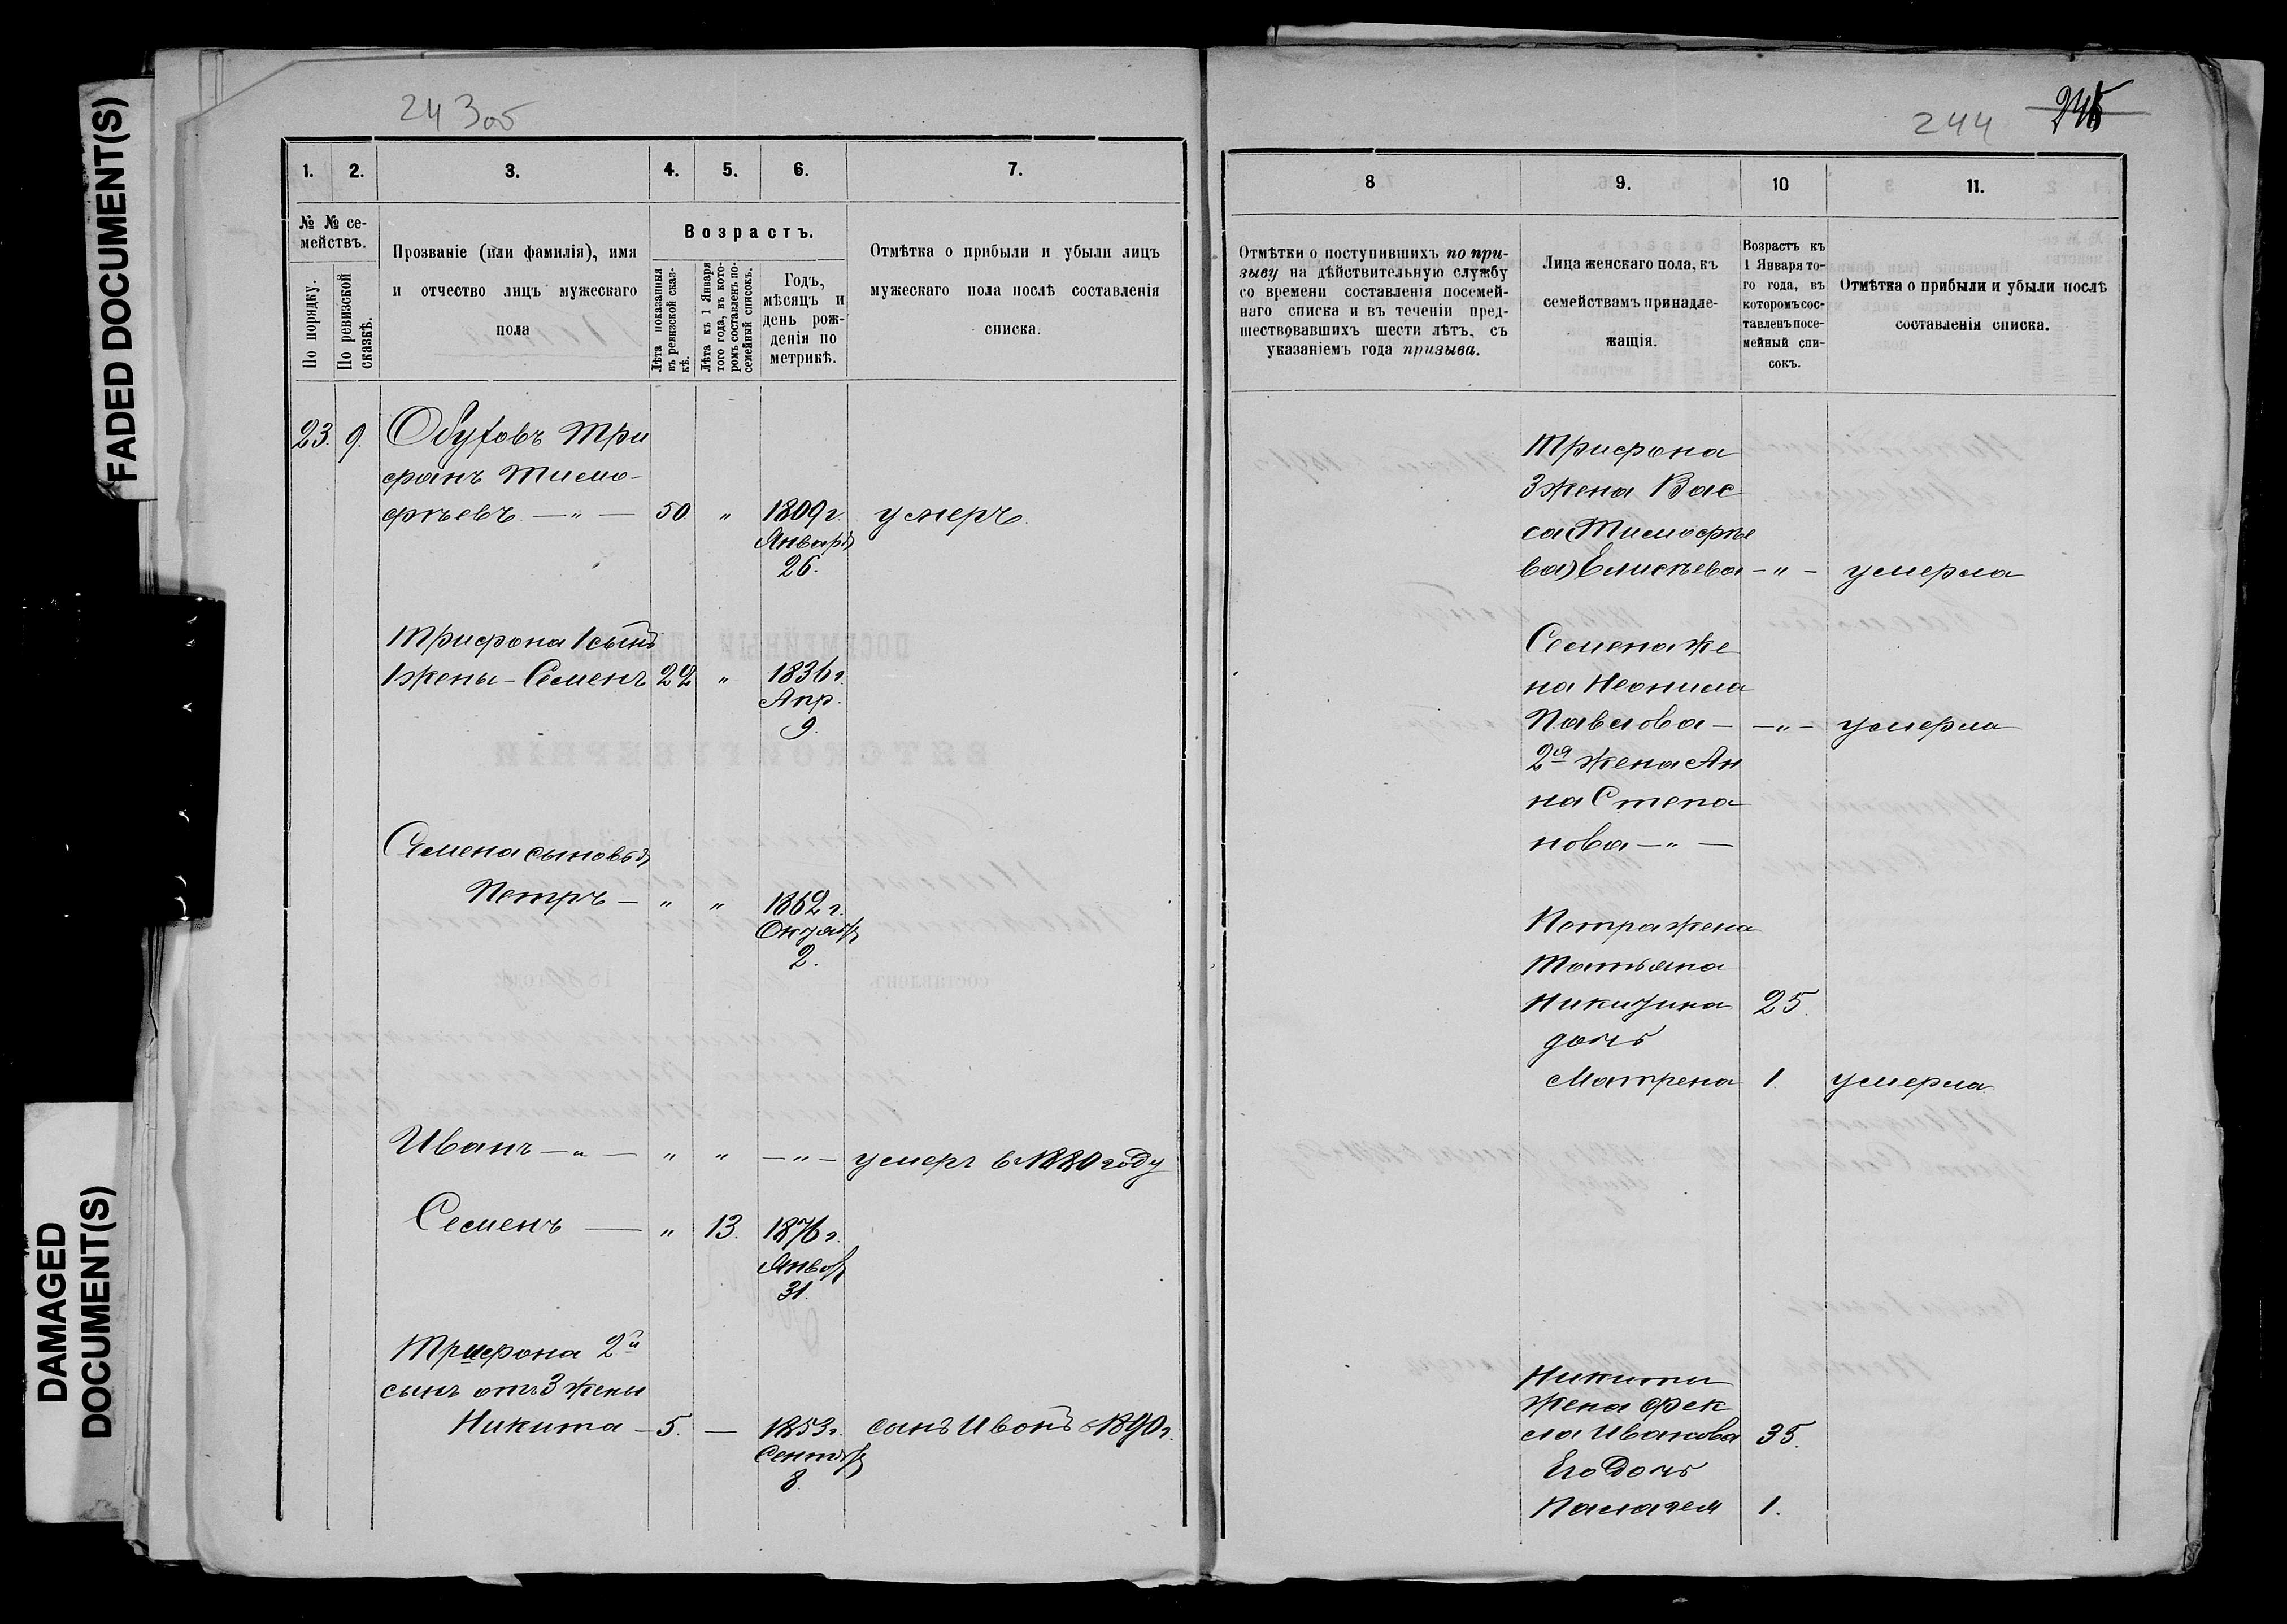 FADED DOCUMENT(S)
DAMAGED
DOCUMENT(S)
24 3об
1. 2. 3. 4. 5. 6. 7.
№ № се-
мействъ.
По порядку.
По ревизской
сказкѣ.
Прозваніе (или фамилія), имя
и отчество лицъ мужескаго
пола
Возрастъ.
Лѣта показанныя
въ ревизской сказ-
кѣ.
Лѣта къ 1 Января
того года, въ кото-
ромъ составленъ по-
семейный списокъ.
Годъ,
мѣсяцъ и
день рож-
денія по
метрикѣ.
Отмѣтка о прибыли и убыли лицъ
мужескаго пола послѣ составленія
списка.
23. 9. Обуховъ Три
фанъ Тимо-
фѣевъ. — „ — 50. „ 1809 г. умеръ.
Январь
26.
Трифона 1 сынъ
1 жены - Семенъ 22 „ 1836 г.
Апр.
9.
Семена сыновья
Петръ — „ „ 1862 г.
Октяб
2.
Иванъ — „ — „ „ — „ — умеръ въ 1880 году
Семенъ — „ 13. 1876 г.
Январ
31.
Трифона 2й
сынъ отъ 3 жены
Никита — 5. — 1853 г. сынъ Иванъ 1890 г.
Сентяб
8.
244 245
8 9. 10 11.
Отмѣтки о поступившихъ по при-
зыву на дѣйствительную службу
со времени составленія посемей-
наго списка и въ теченіи пред-
шествовавшихъ шести лѣтъ, съ
указаніемъ года призыва.
Лица женскаго пола, къ
семействамъ принадле-
жащія.
Возрастъ къ
1 Января то-
го года, въ
которомъ сос-
тавленъ посе-
мейный спи-
сокъ.
Отмѣтка о прибыли и убыли послѣ
составленія списка.
Трифона
3 жена Вас
са (Тимофѣе
ва) Елисѣева — „ — умерла
Семена же
на Неонила
Павлова — — „ — умерла
2я жена Ан
на Степа
нова — „ —
Петра жена
Татьяна
Никитина 25.
дочь
Матрена 1. умерла
Никиты
жена Фек
ла Иванова 35.
Его дочь
Палагея 1.